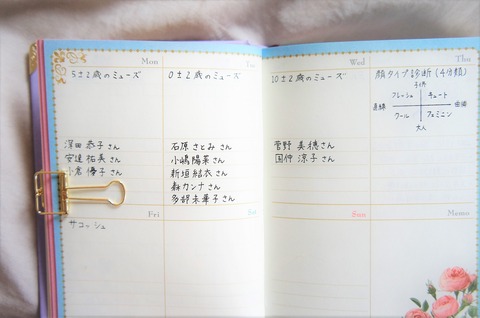 Mon
5±2歳のミューズ
深田 恭子さん
安達 祐実さん
小倉 優子さん
0±2歳のミューズ
石原 さとみ さん
小嶋 陽菜さん
新垣 結衣さん
森 カンナさん
多部 未華子さん
Fri
サコッシュ
Wed
10±2歳のミューズ
菅野 美穂さん
国仲 涼子さん
Thu
顔タイプ診断(4分類)
子供
フレッシュ キュート
直線 曲線
クール フェミニン
大人
Sun
Memo